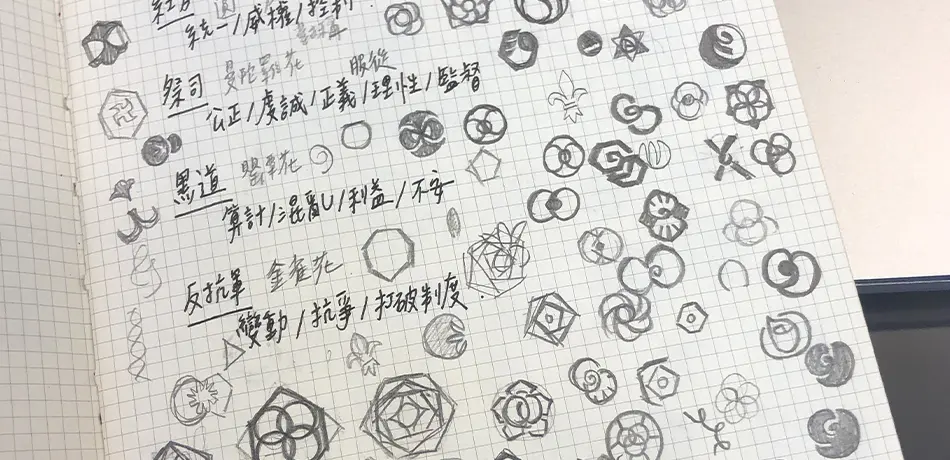 圓
統一/威權/控制
祭司 曼陀羅花 服從
公正/虔誠/正義/理性/監督
黑道 罌粟花
算計/混亂/利益/不安
反抗軍 金雀花
變動/抗爭/打破制度